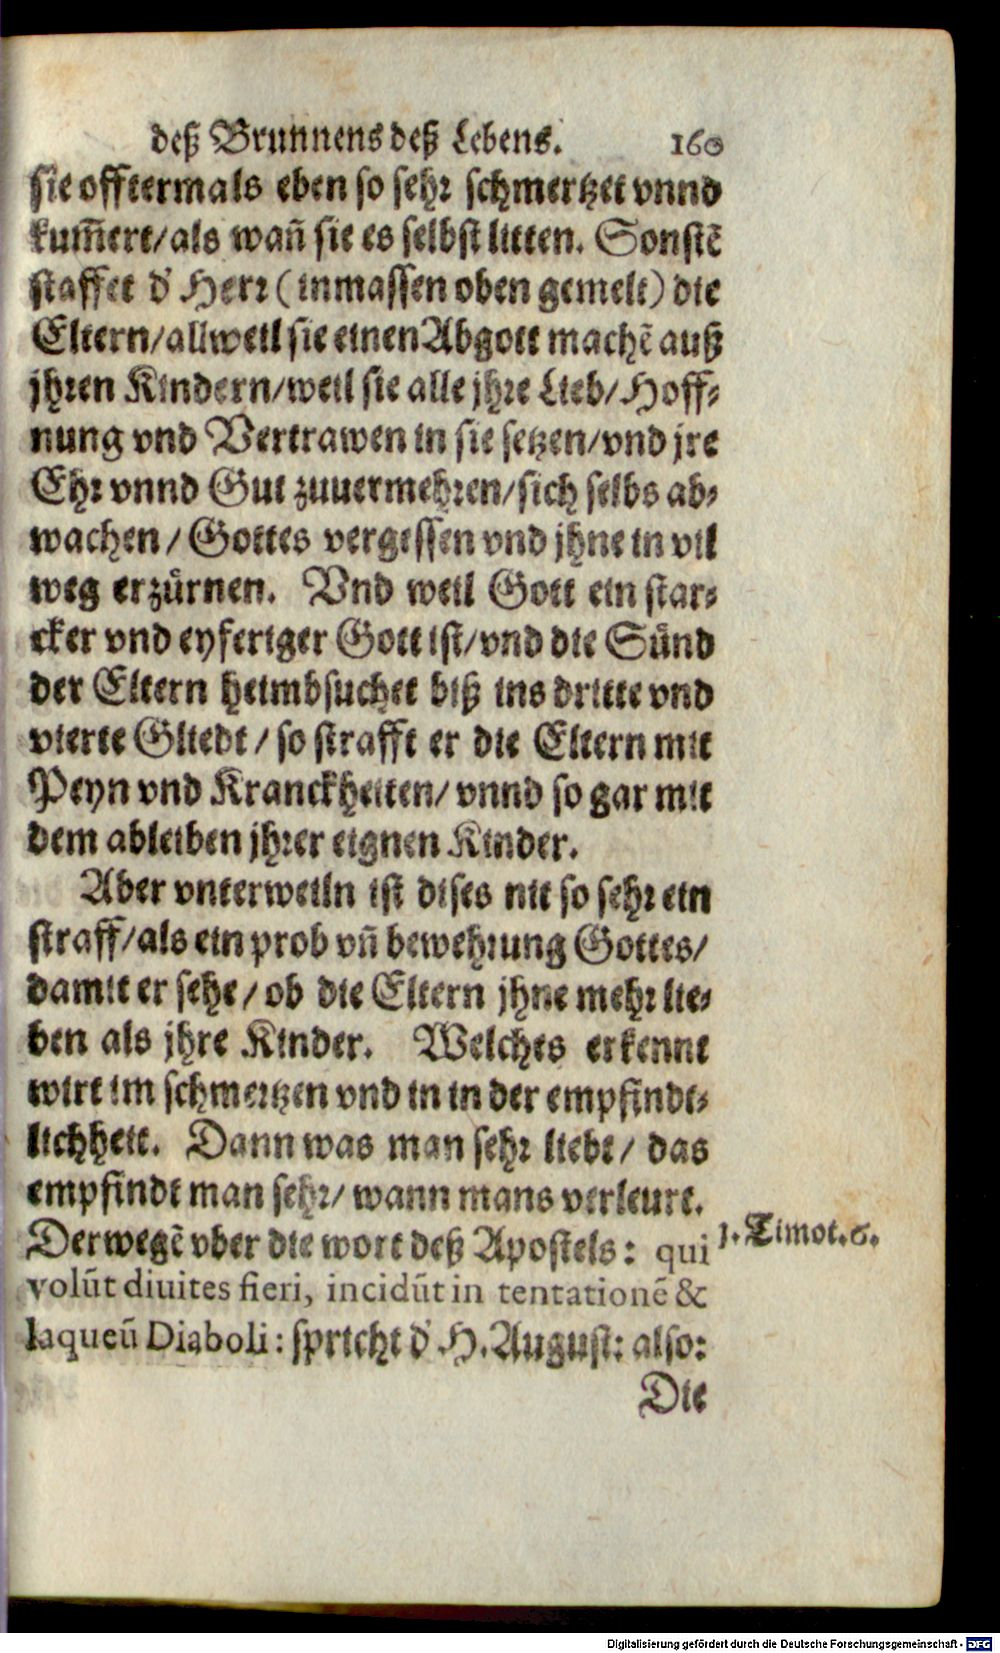 deß Brunnens deß Lebens. 160
sie offtermals eben so sehr schmertzet vnnd
kum̃ert/als wañ sie es selbst litten. Sonstẽ
staffet d' Herr (inmassen oben gemelt) die
Eltern/allweil sie einen Abgott machẽ auß
jhren Kindern/weil sie alle jhre Lieb/Hoff-
nung vnd Vertrawen in sie setzen/vnd jre
Ehr vnnd Gut zuuermehren/sich selbs ab-
wachen/ Gottes vergessen vnd jhne in vil
weg erzürnen. Vnd weil Gott ein star-
cker vnd eyferiger Gott ist/vnd die Sünd
der Eltern heimbsuchet biß ins dritte vnd
vierte Gliedt/ so strafft er die Eltern mit
Peyn vnd Kranckheiten/ vnnd so gar mit
dem ableiben jhrer eignen Kinder.
Aber vnterweiln ist dises nit so sehr ein
straff/als ein prob vñ bewehrung Gottes/
damit er sehe/ ob die Eltern jhne mehr lie-
ben als jhre Kinder. Welches erkennt
wirt im schmertzen vnd in in der empfindt-
lichheit. Dann was man sehr liebt/ das
empfindt man sehr/ wann mans verleurt.
Derwegẽ vber die wort deß Apostels: qui
1. Timot. 6.
volũt diuites fieri, incidũt in tentationẽ &
laqueũ Diaboli: spricht d' H. August: also:
Die
Digitalisierung gefördert durch die Deutsche Forschungsgemeinschaft - DFG